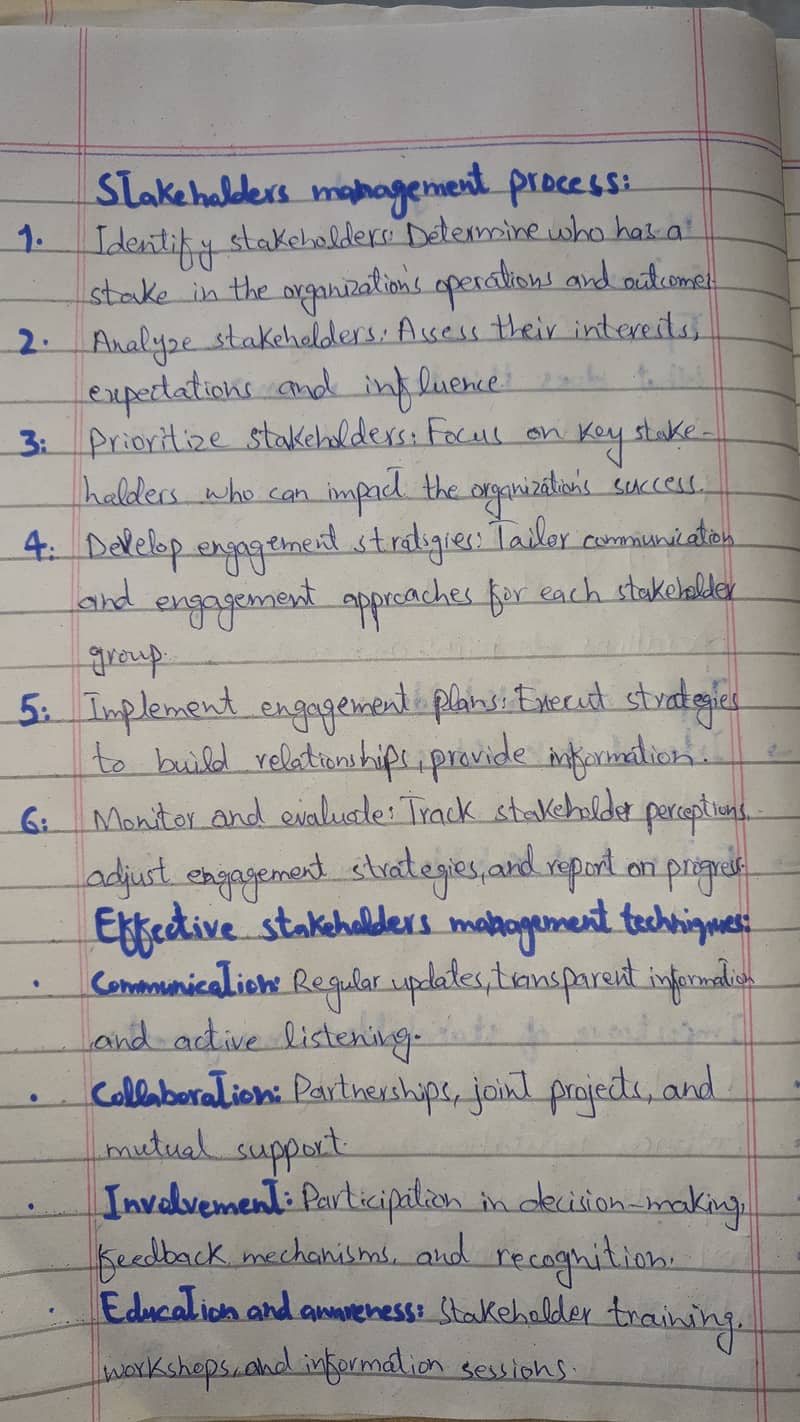 Stakeholders management process:
1. Identify stakeholders: Determine who has a
stake in the organization's operations and outcomes
2. Analyze stakeholders: Assess their interests,
expectations and influence
3: Prioritize stakeholders: Focus on key stake-
holders who can impact the organization's success.
4: Develop engagement stratigies: Tailor communication
and engagement approaches for each stakeholder
group.
5: Implement engagement plans: Execut strategies
to build relationships, provide information.
6: Monitor and evaluate: Track stakeholder perceptions,
adjust engagement strategies, and report on progress.
Effective stakeholders management techniques:
• Communication: Regular updates, transparent information
and active listening.
• Collaboration: Partnerships, joint projects, and
mutual support.
• Involvement: Participation in decision-making,
feedback mechanisms, and recognition.
• Education and awareness: Stakeholder training,
workshops, and information sessions.